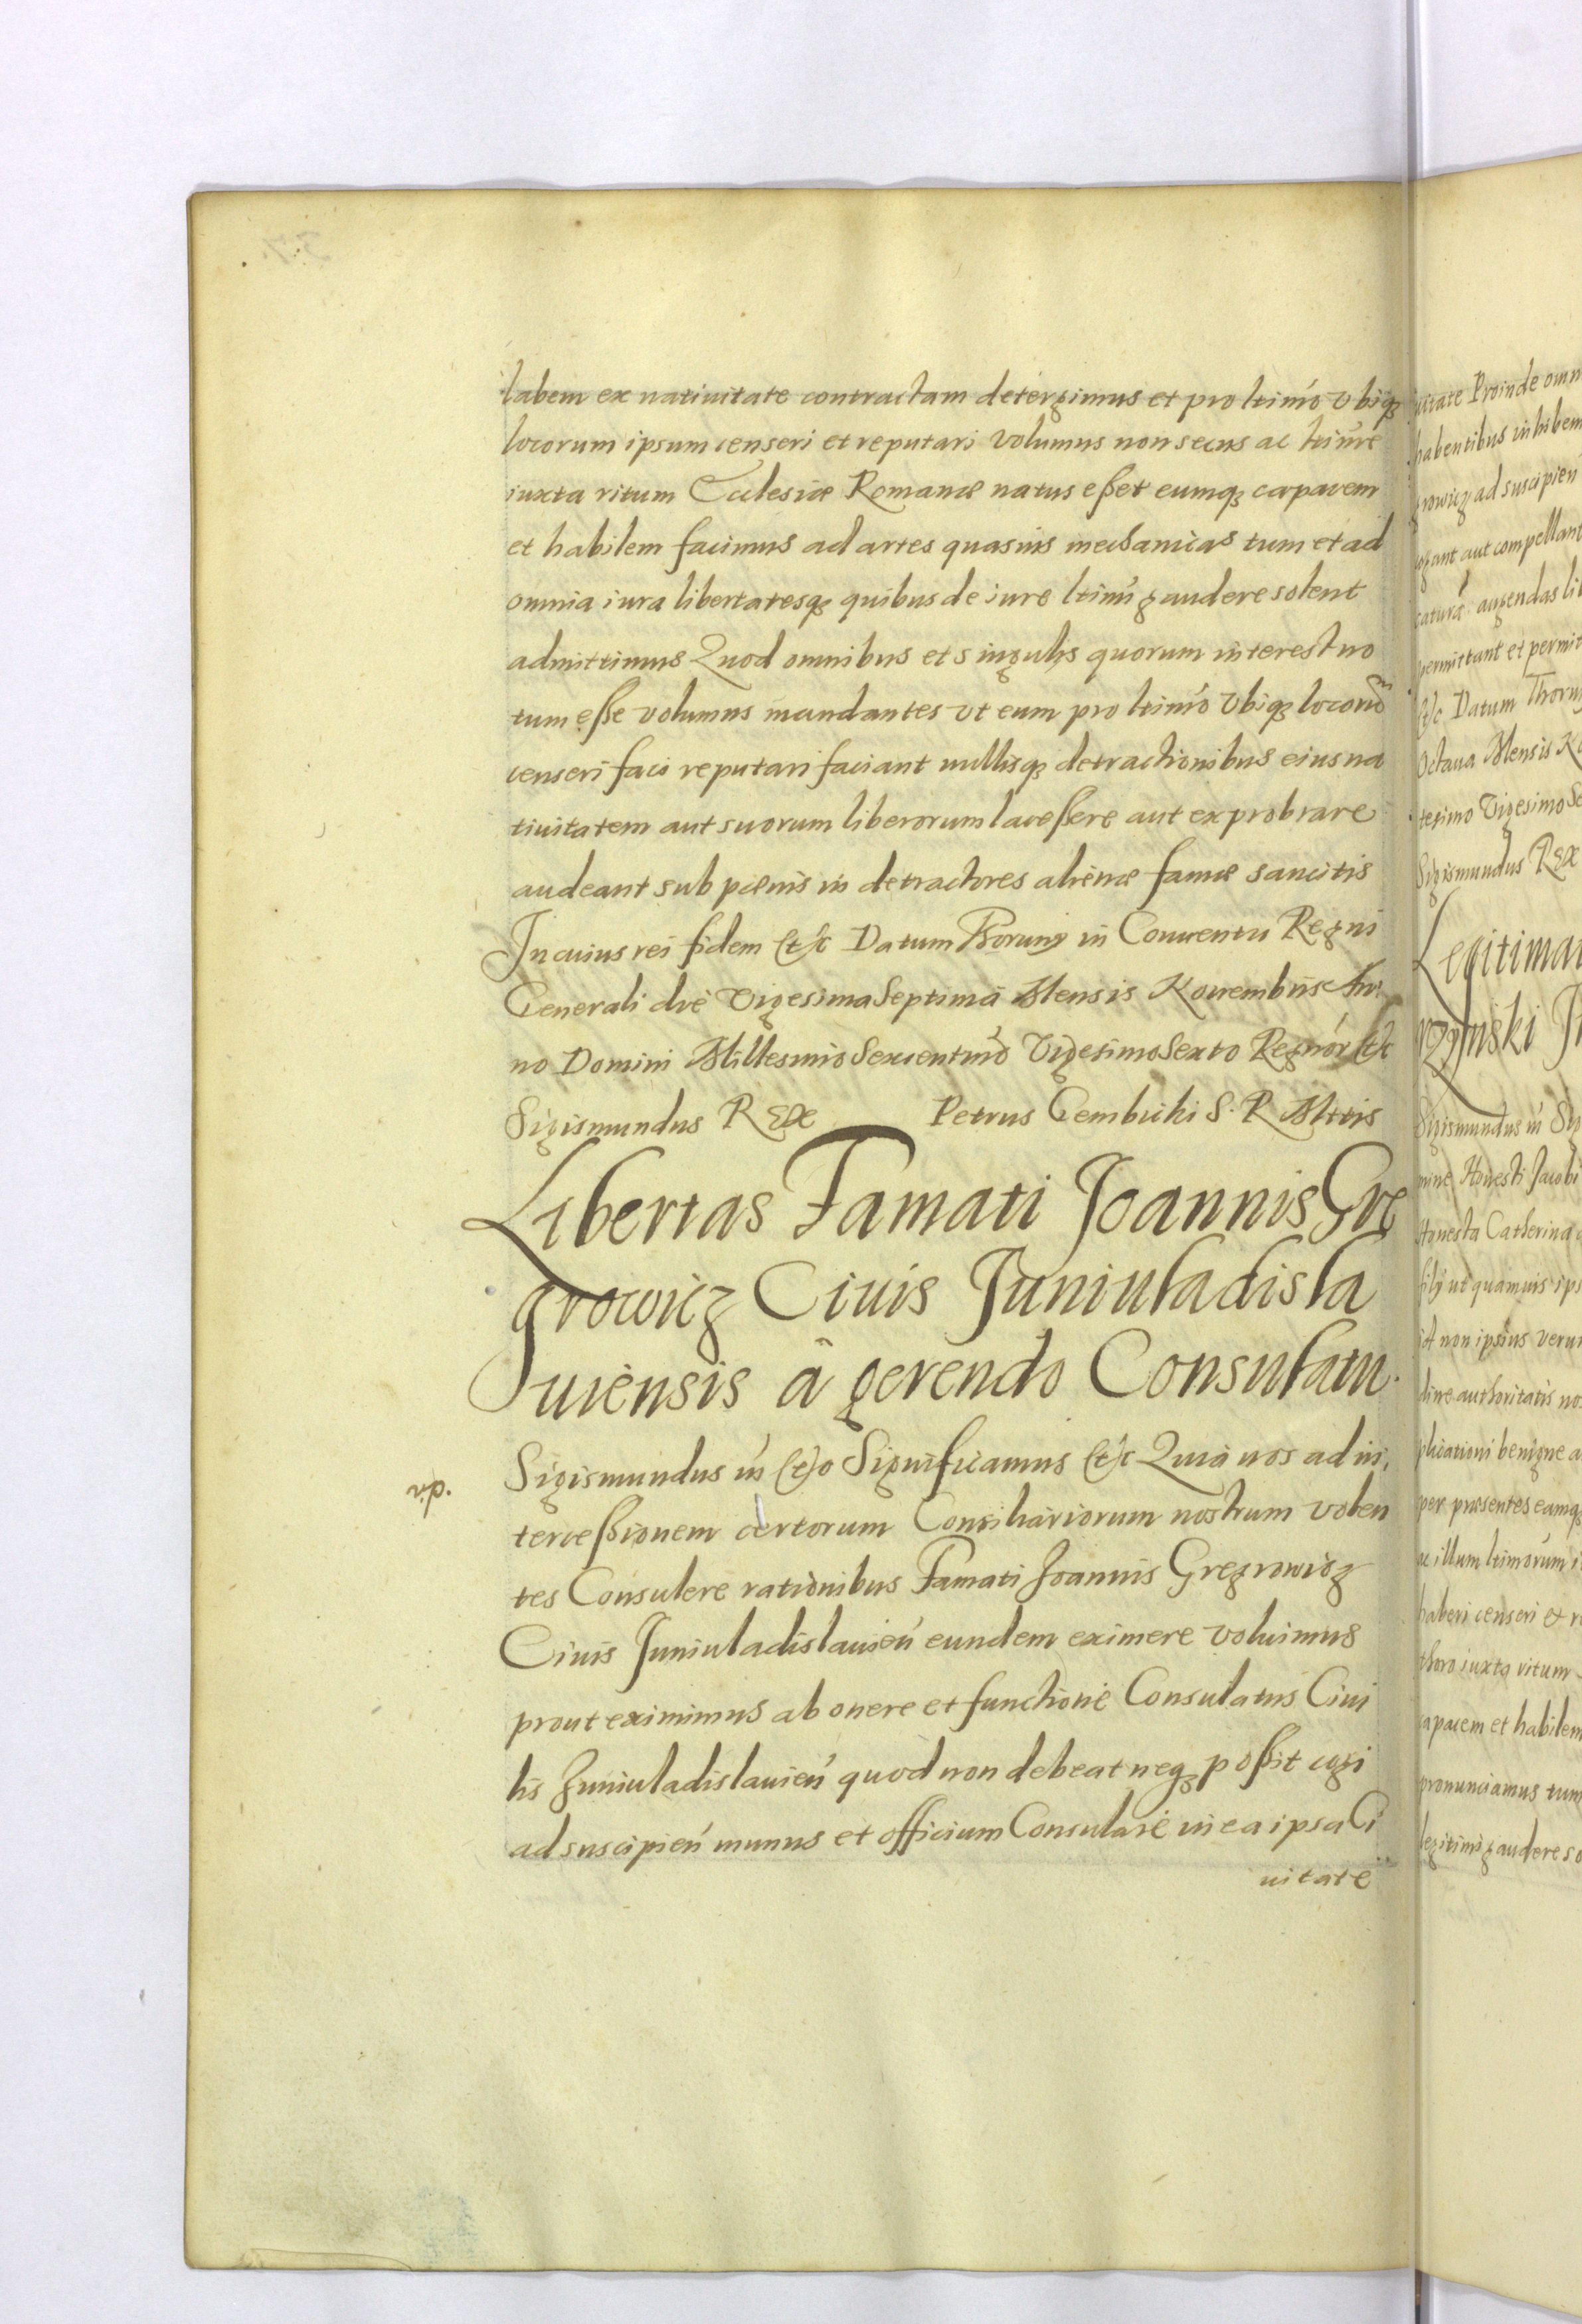 labem ex natiuitate contractam detergimus et pro ltimo vbiq
locorum ipsum censeri et reputari volumus non secus ac ltime
iuxta ritum Ecclesiæ Romanæ natus eßet eumq capacem
et habilem facimus ad artes quasuis mechanicas tum et ad
omnia iura libertatesq quibus de iure ltimi gaudere solent
admittimus Quod omnibus et singulis quorum interest no
tum eße volumus mandantes vt eum pro ltimo vbiq locorū
censeri faci reputari faciant nullisq detractionibus eius na
tiuitatem aut suorum liberorum laceßere aut exprobrare
audeant sub pœnis in detractores alienæ famæ sancitis
In cuius rei fidem (et)c Datum Thoruny in Conuentu Regni
Generali die Vigesima Septima Mensis Nouembris An
no Domini Millesimo Sexcentmo Vigesimo Sexto Regnor (et)c
Sigismundus REX Petrus Gembicki S. R Mttis
Libertas Famati Joannis Gre
growicz Ciuis Juniuladisla
uiensis á gerendo Consulatu.
Sigismundus in (et)c Significamus (et)c Quia nos ad in,
terceßionem certorum Consiliariorum nostrum volen
tes Consulere rationibus Famati Joannis Gregrowicz
Ciuis Juniuladislauień eundem eximere voluimus
prout eximimus ab onere et functione Consulatus Ciui
lis Juniuladislauień quod non debeat neq poßit cogi
ad suscipień munus et officium Consulare in ea ipsa Ci
uitate
uitate Proinde omn
habentibus inhibem
growicz ad suscipien
gant aut compellant
augendas lib
permittant et permit
(et)c Datum Thoruny
Octaua Mensis No
tesimo Vigesimo Se
Sigismundus REX
Legitimat
rzynski
Sigismundus in
mine Honesti Jacobi
Honesta Catherina
filij ut quamuis ips
id non ipsius verum
dine authoritatis nos
plicationi benigne a
per præsentes eamq
ac illum ltimorum i
haberi censeri et re
thoro iuxta ritum
capacem et habilem
pronunciamus tum
legitimi gaudere so